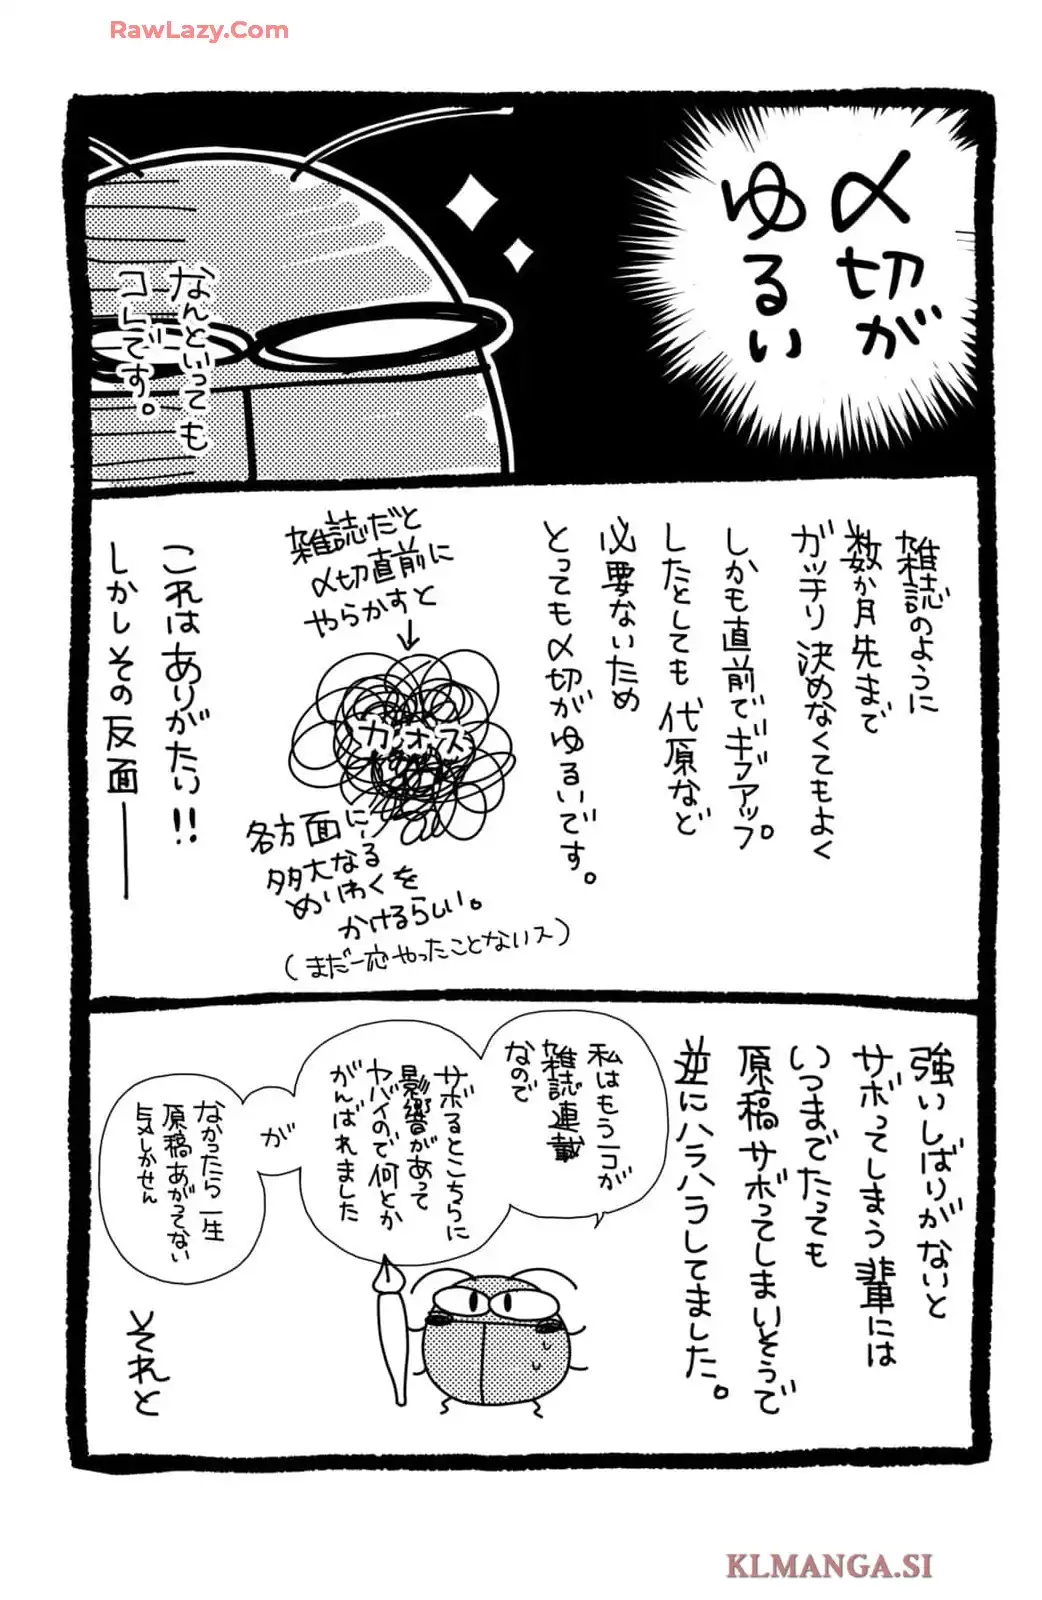 RawLazy.Com
〆切が
ゆるい
なんといっても
コレです。
雑誌のように
数か月先まで
ガッチリ決めなくてもよく
しかも直前でギブアップ
したとしても代原など
必要ないため
とっても〆切がゆるいです。
雑誌だと
〆切直前に
やらかすと
カオス
各方面に
多大なる
めいわくを
かけるらしい。
(まだ一応やったことないス)
これはありがたい!!
しかしその反面――
強いしばりがないと
サボってしまう輩には
いつまでたっても
原稿サボってしまいそうで
逆にハラハラしてました。
私はもう一コが
雑誌連載
なので
サボるとこちらに
影響があって
ヤバイので何とか
がんばれました
が
なかったら一生
原稿あがってない
気しかせん
それと
KLMANGA.SI